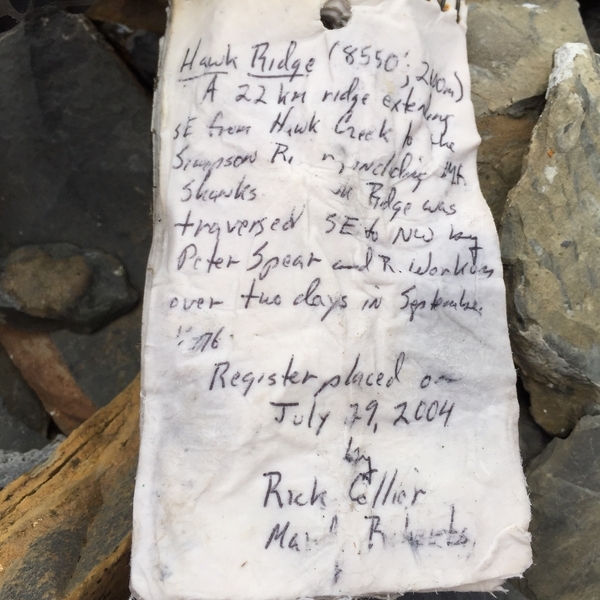 Hawk Ridge (8550';
A 22 km ridge extending
SE from Hawk Creek to the
Simpson R. including Mt.
Shanks Ridge was
traversed SE to NW by
Peter Spear and R. Workum
over two days in September

Register placed on
July 29, 2004
by
Rick Collier
Roberts